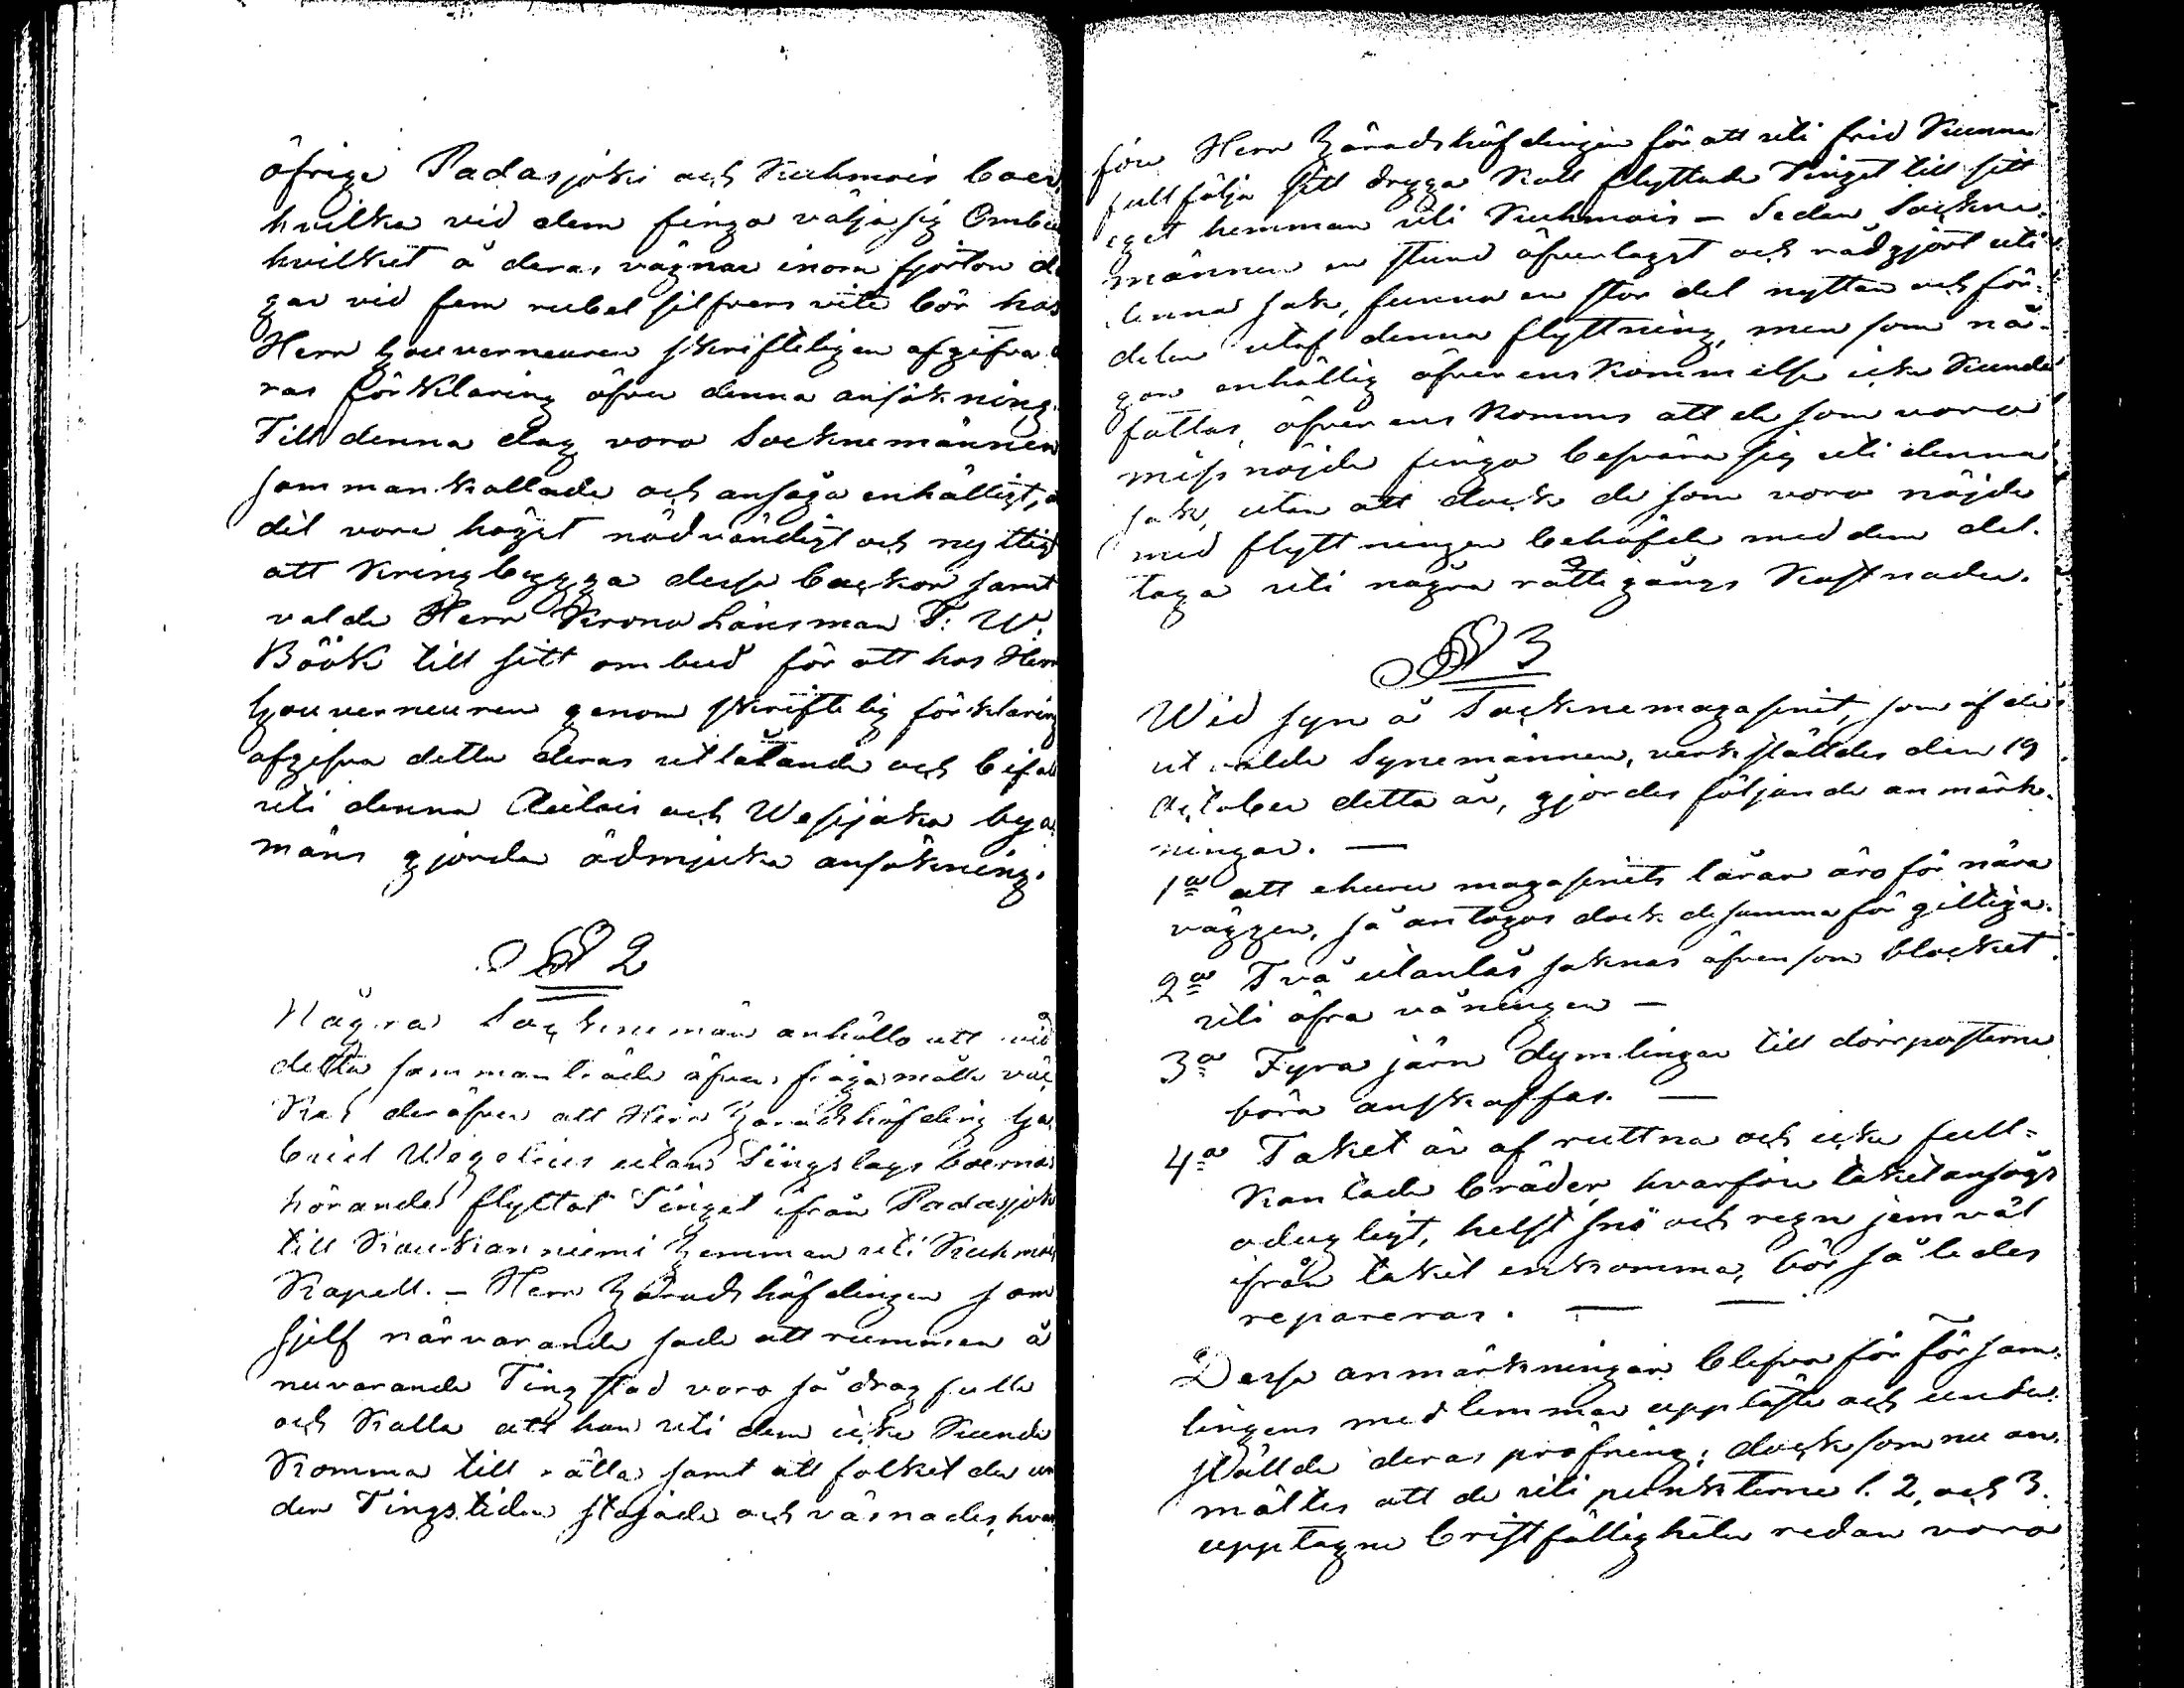 öfrige Padasjoki och Kuhmois boer,
hvilka vid dem finga välja sig Ombu
hvilket å deras vägnar inom fjorton da
gar vid fem rubel silfvers vite bör hos
Herr Gouverneuren skrifteligen afgifva
ras förklaring öfver denna ansökning.
Till denna dag voro Socknemännen
sammankallade och ansågo enhälligt, a
det vore högst nödvändigt och nyttigt
att kringbygga dessa backor samt
valde Herr Krono Länsman T: W:
Böök till sitt ombud för att hos Herr
Gouverneuren genom skriftelig förklaring
afgifva detta deras utlåtande och bifal
uti denna Autois och Wesijako bya
mäns gjorda ödmjuka ansökning.
§ 2
Några Sockenemän anhöllo att vid
detta sammanträde äfven frågamålte väc
kas deröfver att Herr Häradshöfding Ga
briel Wegelius utan Tingslags boernas
hörande flyttat Tinget ifrån Padasjoki
till Kaukanniemi hemman uti Kuhmois
Kapell. – Herr Häradshöfdingen som
sjelf närvarande sade att rummen å
nuvarande Tingstad voro så dragfulla
och kalla att han uti dem icke kunde
komma till rätta samt att folket der un
der Tingstiden stojade och väsnades, hvar
före Herr Häradshöfdingen för att uti frid kunna
fullfölja sitt drygga kall flyttade Tinget till sitt
eget hemman uti Kuhmois – Sedan Sockne-
männen en stund öfverlagt och rådgjort uti
denna sak, funno en stor del nyttan och för-
delen utaf denna flyttning, men som nå-
gon enhällig öfverenskommelse icke kunde
fattas, öfverenskomms att de som voro
missnöjde finga besvära sig uti denna
sak, utan att dock de som voro nöjde
med flyttningen behöfde med dem del-
taga uti några rättegångs kostnader.
§ 3
Wid syn å Socknemagasinet, som af de
utvalde Synemännen, verkställdes den 19
October detta år, gjordes följande anmärk-
ningar. —
1a att ehuru magasinets lårar äro för nära
väggen, så antogos dock desamma för giltiga.
2a Två utanlås saknas äfvensom blocket
uti öfra våningen —
3a Fyra järn dymlingar till dörrposterne
böra anskaffas. —
4a Taket är af ruttna och icke full-
kantade bräder, hvarföre taket ansågs
odugligt, helst snö och regn jemväl
ifrån taket inkomma, bör således
repareras. — —
Dessa anmärkningar blefvo för försam-
lingens medlemmar upplästa och under-
ställde deras pröfning; dock som nu an-
mältes att de uti punkterne 1. 2, och 3.
upptagne bristfälligheter redan voro